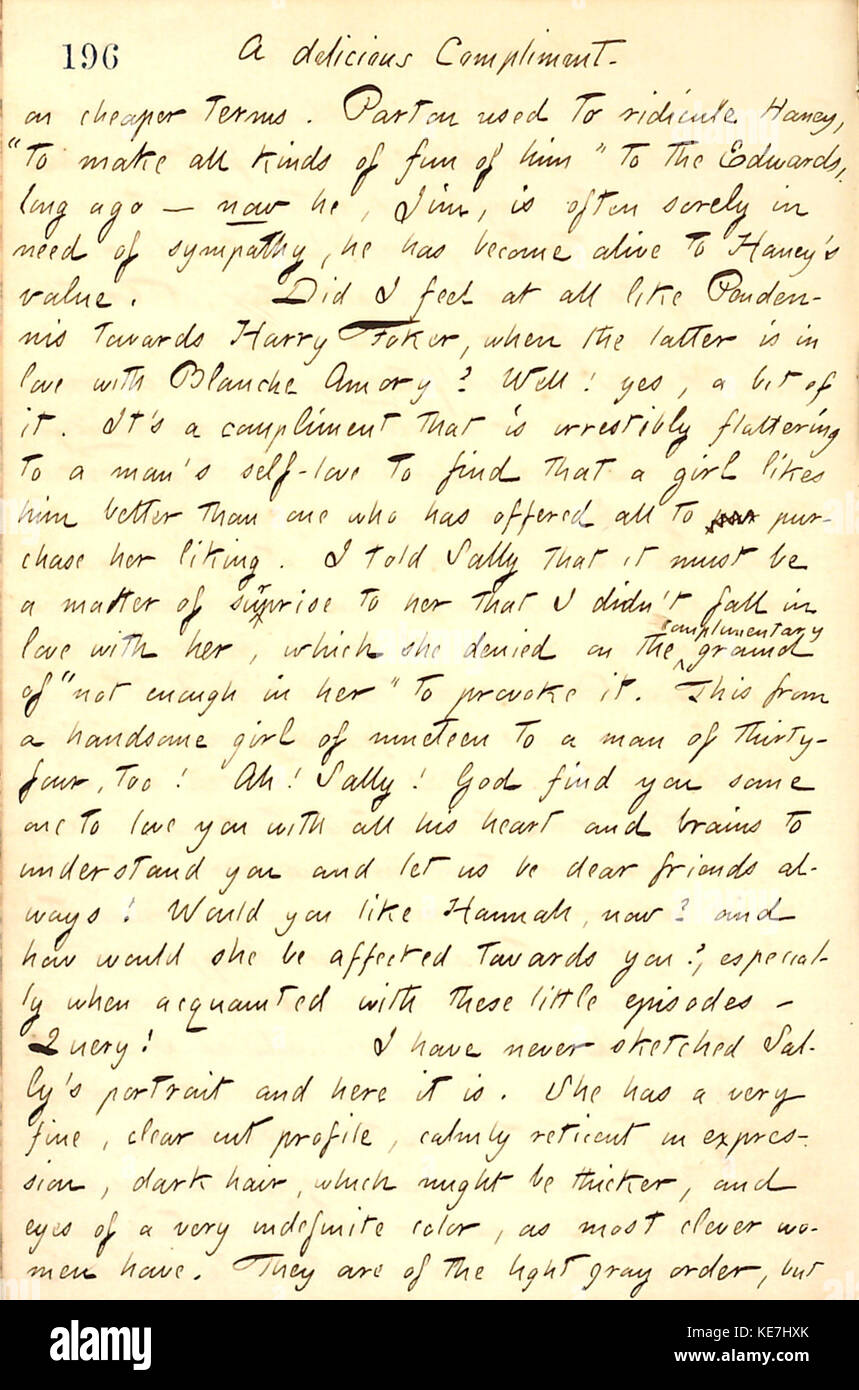 196 A delicious Compliment.
on cheaper terms. Parton used to ridicule Haney,
"to make all kinds of fun of him" to the Edwards,
long ago — now he, Jim, is often sorely in
need of sympathy, he has become alive to Haney's
value. Did I feel at all like Penden-
nis towards Harry Foker, when the latter is in
love with Blanche Amory? Well! yes, a bit of
it. It's a compliment that is irrestibly flattering
to a man's self-love to find that a girl likes
him better than one who has offered all to pur pur-
chase her liking. I told Sally that it must be
a matter of surprise to her that I didn't fall in
love with her, which she denied on the complimentary ground
of "not enough in her" to provoke it. This from
a handsome girl of nineteen to a man of thirty-
four, too! Ah! Sally! God find you some
one to love you with all his heart and brains to
understand you and let us be dear friends al-
ways! Would you like Hannah, now? and
how would she be affected towards you?, especial-
ly when acquainted with these little episodes —
Query! I have never sketched Sal-
ly's portrait and here it is. She has a very
fine, clear cut profile, calmly reticent in expres-
sion, dark hair, which might be thicker, and
eyes of a very indefinite color, as most clever wo-
men have. They are of the light gray order, but
alamy
Image ID: KE7HXK
www.alamy.com